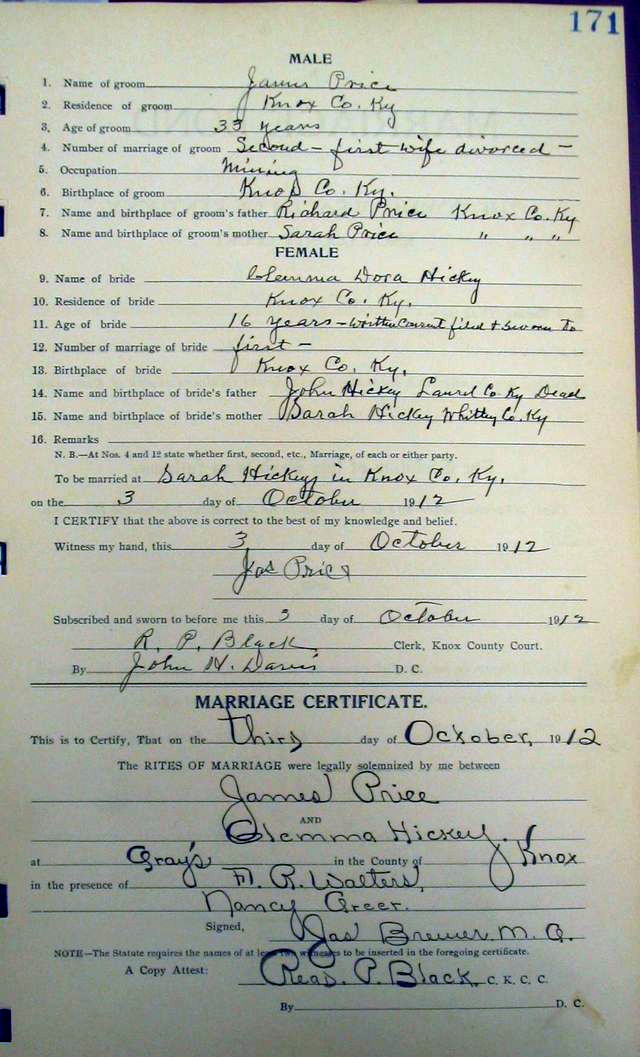 171
MALE
1. Name of groom James Price
2. Residence of groom Knox Co. Ky
3. Age of groom 33 years
4. Number of marriage of groom Second - first wife divorced -
5. Occupation Mining
6. Birthplace of groom Knox Co. Ky.
7. Name and birthplace of groom's father Richard Price Knox Co. Ky
8. Name and birthplace of groom's mother Sarah Price " " "
FEMALE
9. Name of bride Clemma Dora Hickey
10. Residence of bride Knox Co. Ky.
11. Age of bride 16 years - Written Consent filed & sworn to
12. Number of marriage of bride first -
13. Birthplace of bride Knox Co. Ky.
14. Name and birthplace of bride's father John Hickey Laurel Co. Ky Dead
15. Name and birthplace of bride's mother Sarah Hickey Whitley Co. Ky
16. Remarks
N. B.—At Nos. 4 and 12 state whether first, second, etc., Marriage, of each or either party.
To be married at Sarah Hickeys in Knox Co. Ky.
on the 3 day of October 1912
I CERTIFY that the above is correct to the best of my knowledge and belief.
Witness my hand, this 3 day of October 1912
Jas Price
Subscribed and sworn to before me this 3 day of October 1912
R. P. Black Clerk, Knox County Court.
By John H. Davis D. C.
MARRIAGE CERTIFICATE.
This is to Certify, That on the third day of October, 1912
The RITES OF MARRIAGE were legally solemnized by me between
James Price
AND
Clemma Hickey.
at Gray's in the County of Knox
in the presence of R. Walters,
Nancy Greer.
Signed, Jas Brewer. M. G.
NOTE—The Statute requires the names of at least two witnesses to be inserted in the foregoing certificate.
A Copy Attest: Read. P. Black, C. K. C. C.
By D. C.